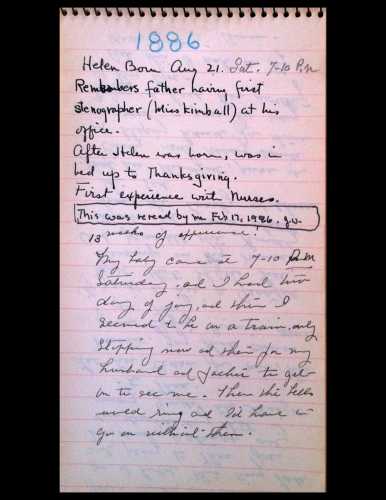 1886
Helen Born Aug 21. Sat. 7-10 P.M
Remembers father having first
stenographer (Miss Kimball) at his
office.
After Helen was born, was in
bed up to Thanksgiving.
First experience with Nurses.
This was reread by me Feb 17, 1986. J.W.
13 weeks of experience!
My baby came at 7-10 P.M
Saturday, ad I had two
days of joy, ad then I
seemed to be on a train, only
stopping now ad then for my
husband ad father to get
on to see me. Then the bells
would ring ad I'd have to
go on without them.